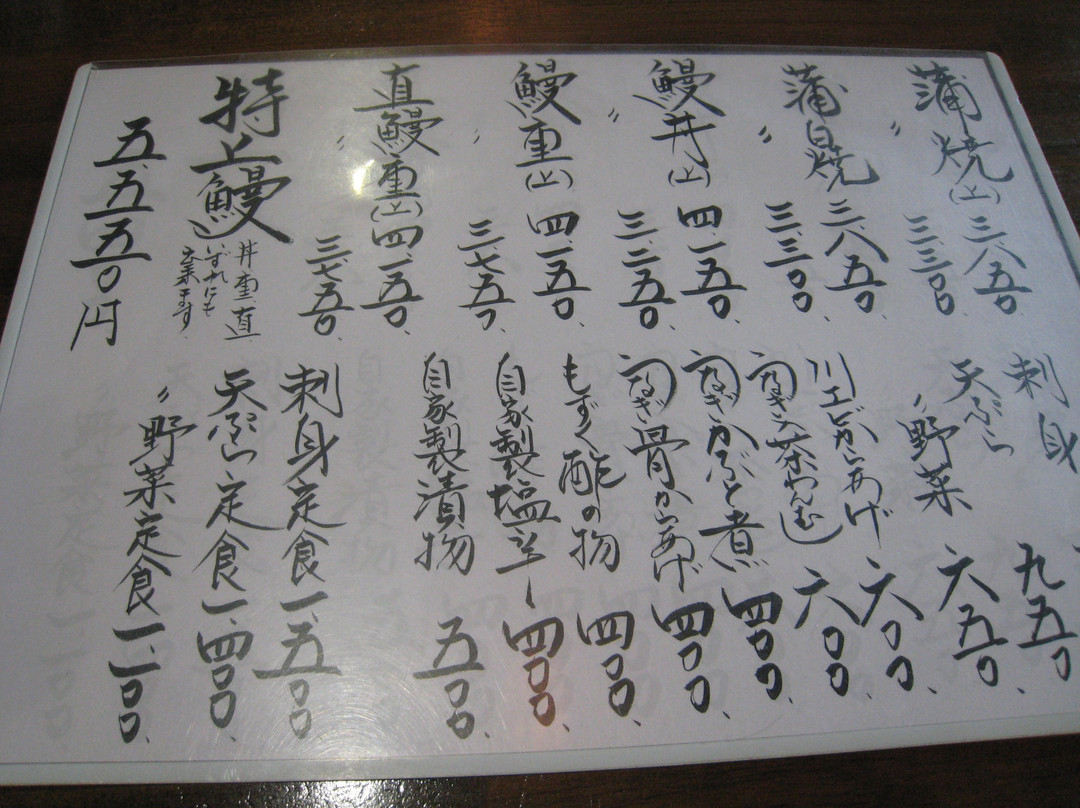 蒲焼(上) 三、八五〇
〃 三、三〇〇
蒲白焼 三、八五〇
〃 三、三〇〇
鰻丼(上) 四、一五〇
〃 三、二五〇
鰻重(上) 四、一五〇
〃 三、七五〇
直鰻重(上) 四、一五〇
〃 三、七五〇
特上鰻
丼重直
いずれにも
出来ます
五、五五〇円
刺身 九五〇
天ぷら 六五〇
〃野菜
川エビからあげ 六〇〇
うなぎ茶わんむし 六〇〇
うなぎかぶと煮 四〇〇
うなぎ骨からあげ 四〇〇
もずく酢の物 四〇〇
自家製塩辛 四〇〇
自家製漬物 五〇〇
刺身定食 一、五〇〇
天ぷら定食 一、四〇〇
〃野菜定食 一、一〇〇